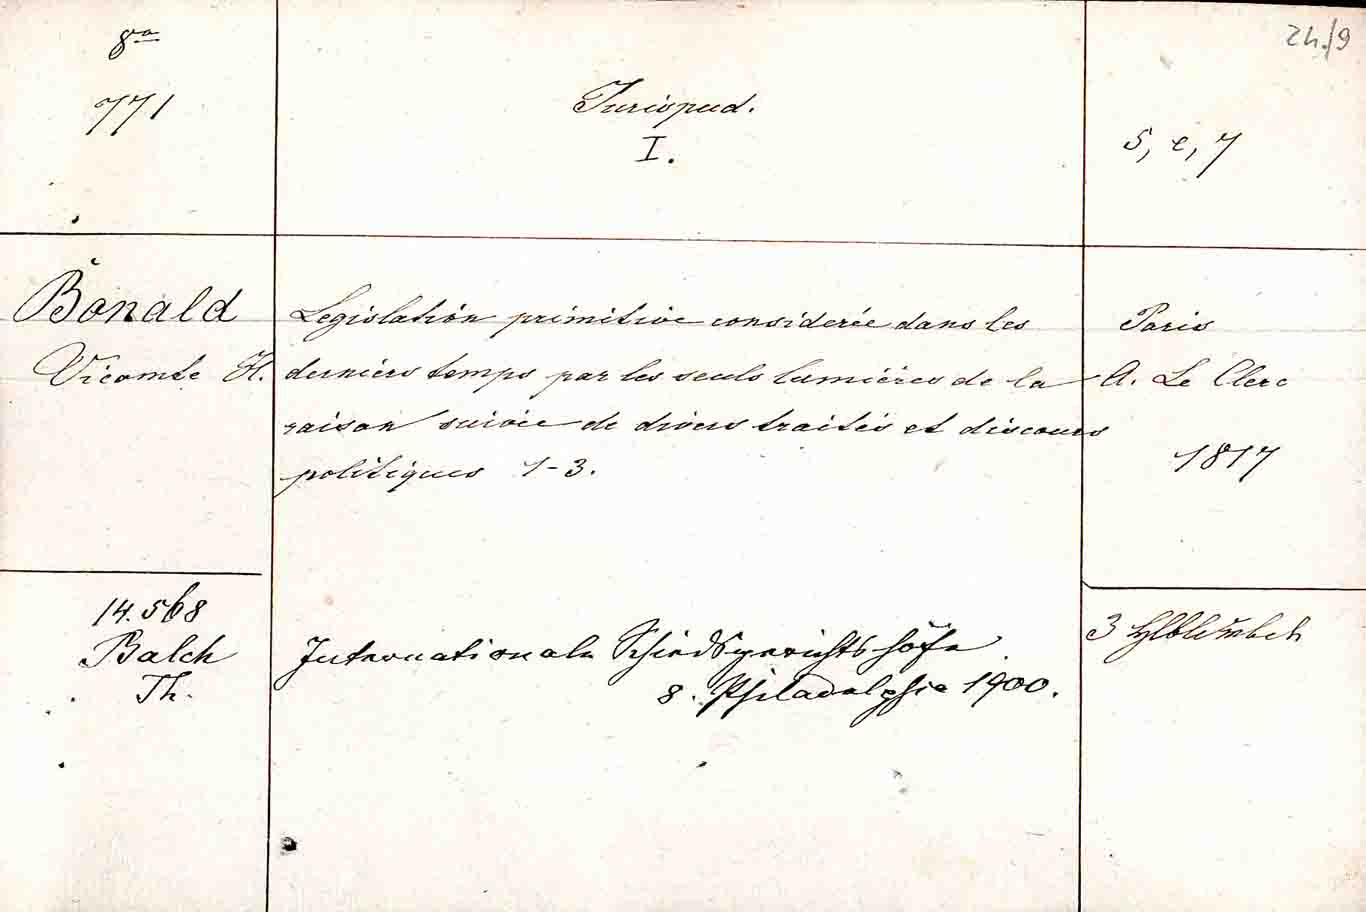 8º
771
Jurispud.
I.
24./9
5, e, 7
Bonald
Vicomte H.
Legislation primitive considerée dans les
derniers temps par les seuls lumières de la
raison suivie de divers traités et discours
politiques 1-3.
Paris
A. Le Clerc
1817
14.568
Balch
Th.
Internationale Schiedsgerichtshöfe
8. Philadelphia 1900.
3